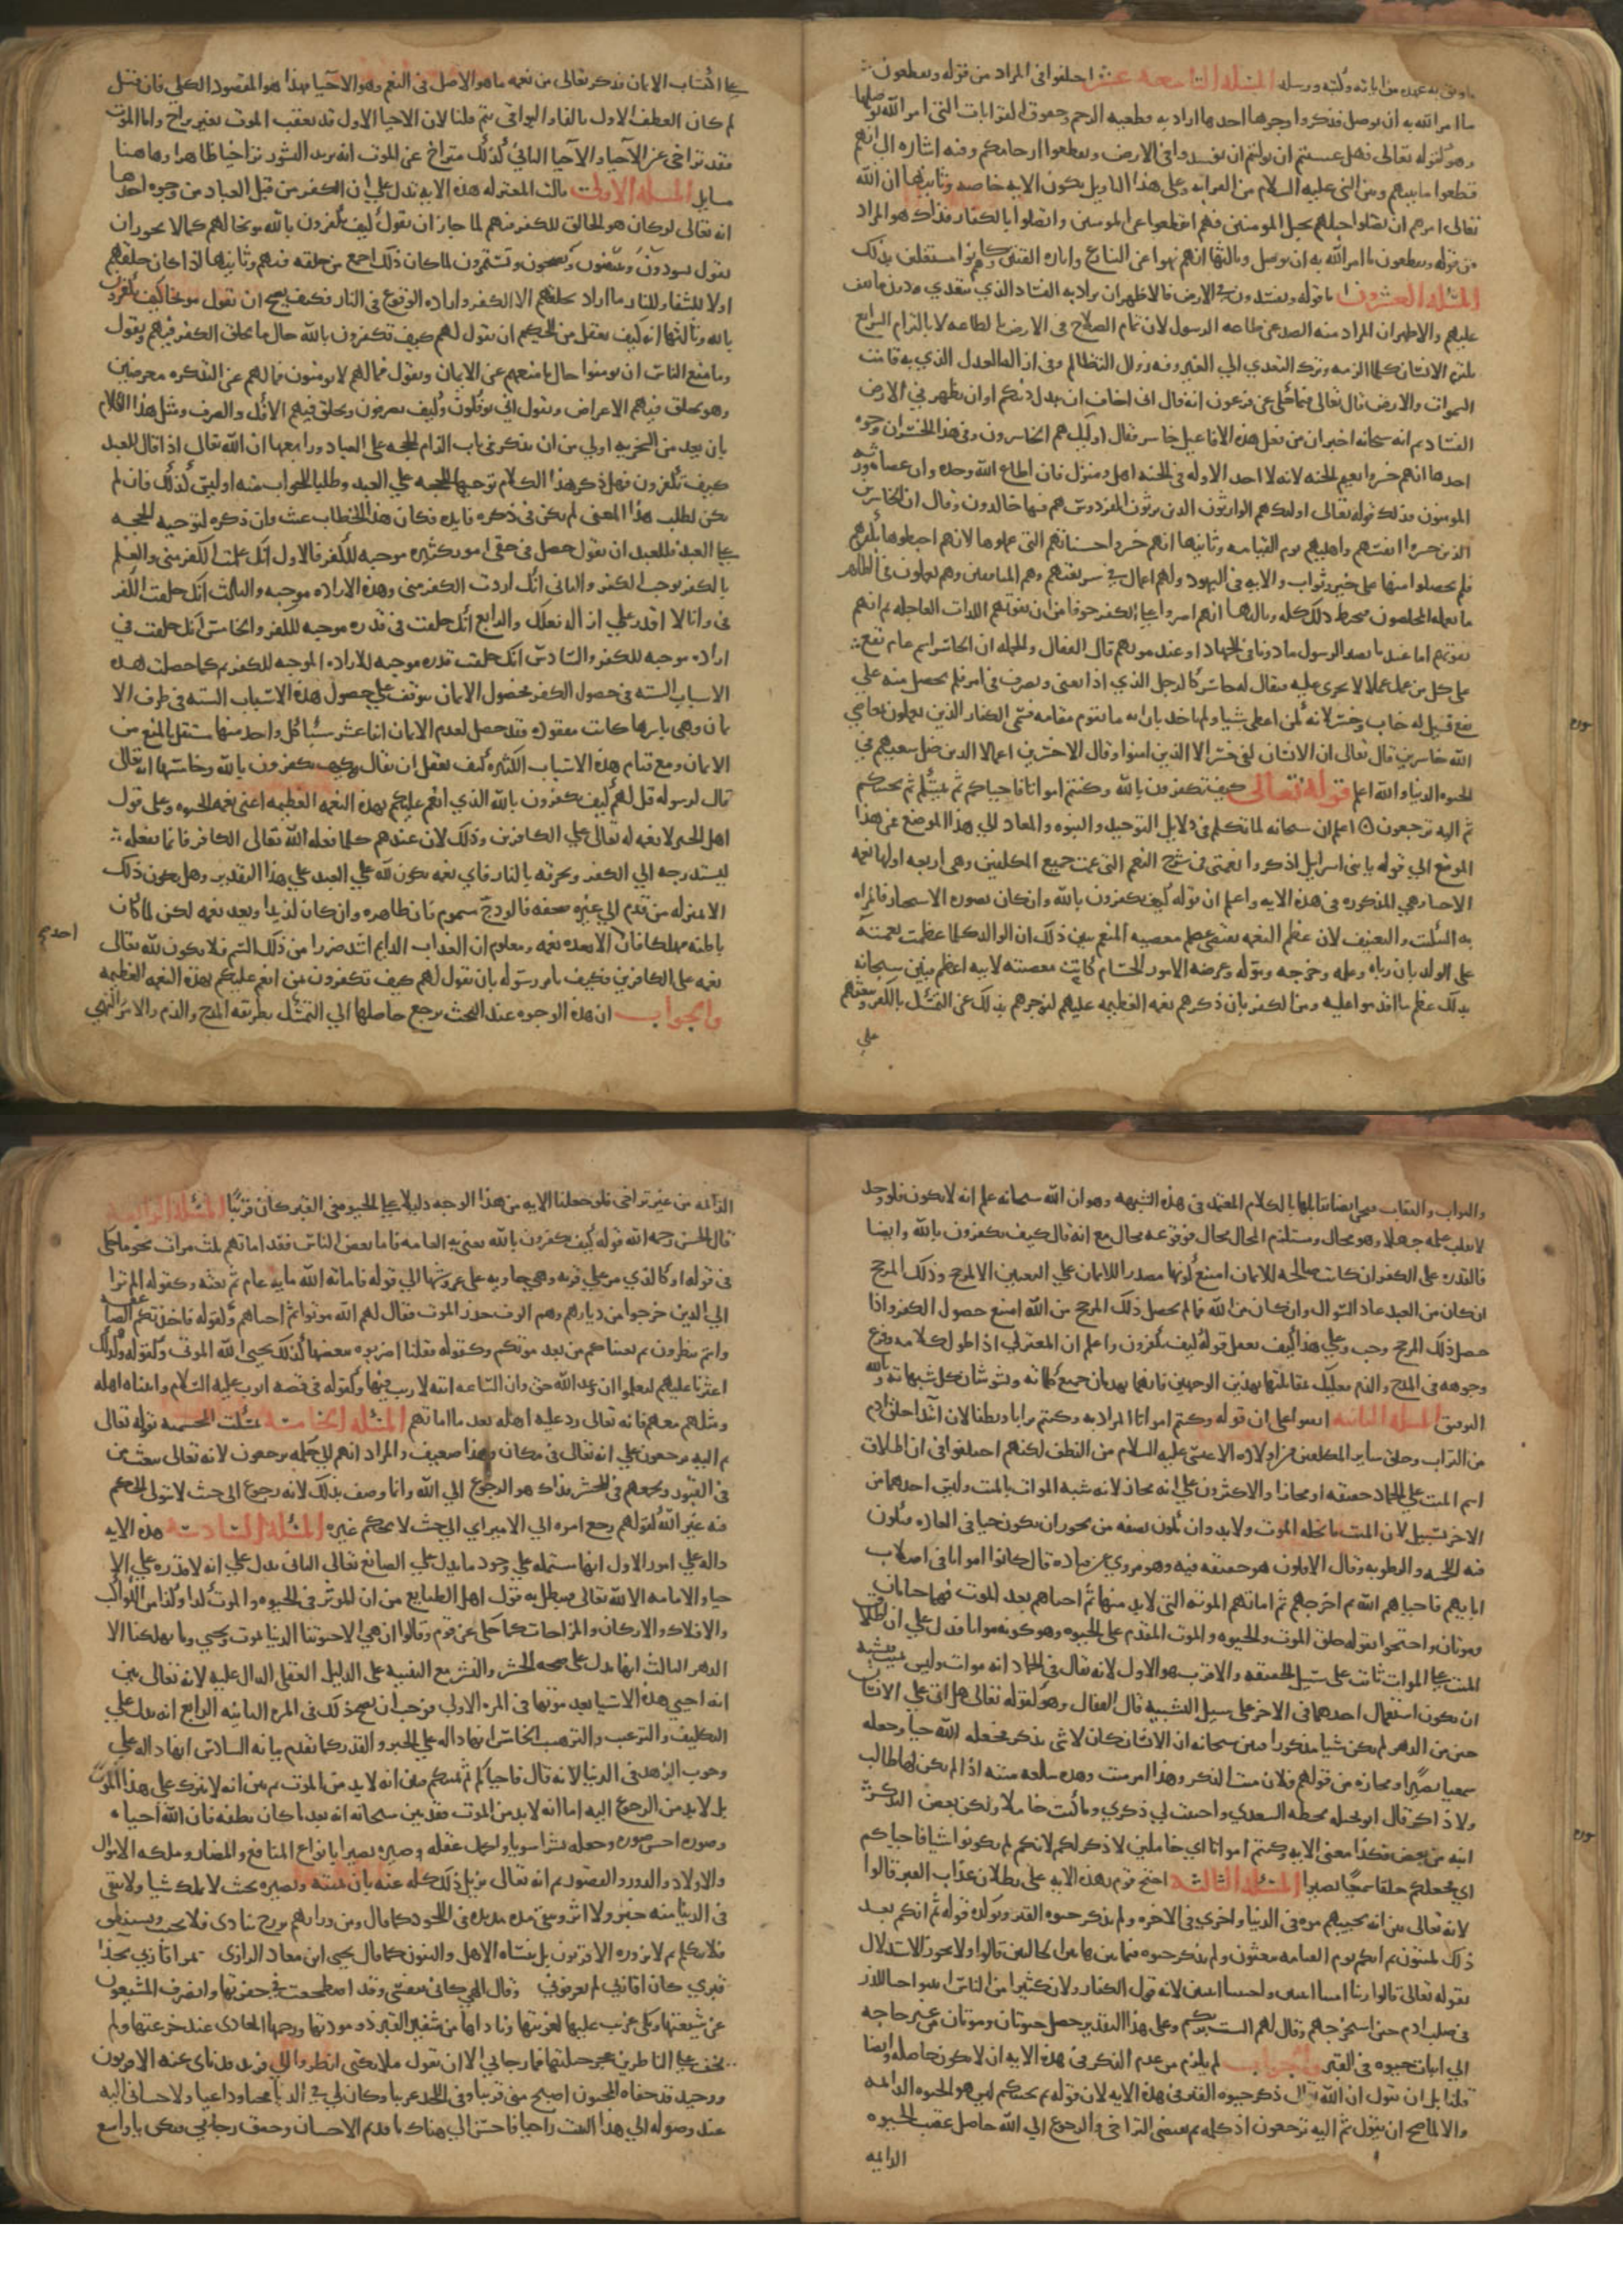 ما وثق به عهده من اياته وكتبه ورسله المسئلة التاسعة عشر اختلفوا في المراد من قوله ويقطعون
ما امر الله به ان يوصل فذكروا وجوها احدها اراد به قطيعة الرحم وحقوق القرابات التي امر الله بوصلها
وهو كقوله تعالى فهل عسيتم ان توليتم ان تفسدوا في الارض وتقطعوا ارحامكم وفيه اشارة الى انهم
قطعوا ما بينهم وبين النبي عليه السلام من القرابة وعلى هذا التاويل يكون الاية خاصة وثانيها ان الله
تعالى امرهم ان يصلوا حبلهم بحبل المومنين فهم انقطعوا عن المومنين واتصلوا بالكفار فذاك هو المراد
من قوله ويقطعون ما امر الله به ان يوصل وثالثها انهم نهوا عن التنازع واثارة الفتن وكانوا مشتغلين بذلك
المسئلة العشرون اما قوله ويفسدون في الارض فالاظهر ان يراد به الفساد الذي يتعدى دون ما يقف
عليهم والاظهر ان المراد منه الصد عن طاعة الرسول لان تمام الصلاح في الارض بالطاعة لان بالتزام الشرايع
يلتزم الانسان كلما لزمه وترك التعدي الي الغير ومنه زوال التظالم وفي زواله العدل الذي به قامت
السموات والارض قال تعالى فيما حكى عن فرعون انه قال اني اخاف ان يبدل دينكم او ان يظهر في الارض
الفساد ثم انه سبحانه اخبر ان من فعل هذه الافاعيل خاسر فقال اوليك هم الخاسرون وفي هذا الخسران وجوه
احدها انهم خسروا نعيم الجنة لانه لا احد الا وله في الجنة اهل ومنزل فان اطاع الله وجده وان عصاه ورثه
المومنون فذلك قوله تعالى اوليك هم الوارثون الذين يرثون الفردوس هم فيها خالدون وقال ان الخاسرين
الذين خسروا انفسهم واهليهم يوم القيامة وثانيها انهم خسروا حسناتهم التي عملوها لانهم احبطوها بكفرهم
فلم يحصلوا منها على خير وثواب والاية في اليهود ولهم اعمال في شريعتهم وهم المنافقين وهم يعملون في الظاهر
ما يعمله المخلصون فحبط ذلك كله وثالثها انهم اصروا علي الكفر خوفا من ان تفوتهم اللذات العاجلة ثم انهم
تفوتهم اما عند ما يصير الرسول ماذونا في الجهاد او عند موتهم قال القفال وبالجملة ان الخاسر اسم عام تقع
على كل من عمل عملا لا يجزى عليه فيقال له خاسر كالرجل الذي اذا تعنى وتصرف في امر فلم يحصل منه علي
نفع قيل له خاب وخسر لانه كمن اعطى شيا ولم ياخذ بازايه ما يقوم مقامه فسمى الكفار الذين يعملون بمعاصي
الله خاسرين قال تعالى ان الانسان لفي خسر الا الذين امنوا وقال الاخسرين اعمالا الذين ضل سعيهم في
الحيوة الدنيا والله اعلم قوله تعالى كيف تكفرون بالله وكنتم امواتا فاحياكم ثم يميتكم ثم يحييكم
ثم اليه ترجعون اعلم ان سبحانه لما تكلم في دلايل التوحيد والنبوة والمعاد الي هذا الموضع فمن هذا
الموضع الي قوله يا بني اسرايل اذكروا نعمتى في شرح النعم التي عمت جميع المكلفين وهي اربعة اولها نعمة
الاحيا وهي المذكورة في هذه الاية واعلم ان قوله كيف تكفرون بالله وان كان بصورة الاستخبار فالمراد
به التبكيت والتعنيف لان عظم النعمة يقتضي عظم معصية المنعم يبين ذلك ان الوالد كلما عظمت نعمته
على الولد بان رباه وعلمه وخرجه وموله وعرضه الامور الحسام كانت معصيته لابيه اعظم فبين سبحانه
بذلك عظم ما اقدموا عليه ومن الكفر بان ذكرهم نعمه العظيمة عليهم ليزجرهم بذلك عن التمسك بالكفر ويبعثهم
على
علي اكتساب الايمان فذكر تعالى من نعمه ما هو الاصل في النعم وهو الاحيا فهذا هو المقصود الكلي فان قيل
لم كان العطف الاول بالفا والبواقي بثم قلنا لان الاحيا الاول قد تعقب الموت بغير تراخ واما الموت
فقد تراخى عن الاحيا والاحيا الثاني كذلك متراخ عن الموت ان يريد النشور تراخيا ظاهرا وهاهنا
مسايل المسئلة الاولى قالت المعتزلة هذه الاية تدل علي ان الكفر من قبل العباد من وجوه احدها
انه تعالى لو كان هو الخالق للكفر فيهم لما جاز ان يقول كيف تكفرون بالله موبخا لهم كما لا يجوز ان
يقول كيف تسودون وتبيضون وتصحون وتسقمون لما كان ذلك اجمع من خلقه فيهم وثانيها اذا كان خلقهم
اولا للشقا والنار ما اراد بخلقهم الا الكفر وارادة الوقوع في النار فكيف يصح ان يقول موبخا كيف تكفرون
بالله وثالثها انه كيف يعقل من الحكيم ان يقول لهم كيف تكفرون بالله حال ما يخلق الكفر فيهم ويقول
وما منع الناس ان يومنوا حال ما منعهم عن الايمان ويقول فما لهم لا يومنون فما لهم عن التذكرة معرضين
وهو يخلق فيهم الاعراض ويقول انى توفكون وكيف تصرفون ويخلق فيهم الافك والصرف ومثل هذا الكلام
بان يعد من السخرية اولي من ان يذكر في باب الزام الحجة على العباد ورابعها ان الله تعالى اذا قال للعبد
كيف تكفرون فهل ذكر هذا الكلام توجيها للحجة علي العبد وطلبا للجواب منه او ليس كذلك فان لم
يكن لطلب هذا المعنى لم يكن في ذكره فايدة فكان هذا الخطاب عبث وان ذكره لتوجيه الحجة
علي العبد فللعبد ان يقول حصل في حقي امور كثيرة موجبه للكفر فالاول انك علمت الكفر مني والعلم
بالكفر يوجب الكفر والثاني انك اردت الكفر مني وهذه الارادة موجبه والثالث انك خلقت الكفر
في وانا لا اقدر علي ازالة فعلك والرابع انك خلقت في قدرة موجبه للكفر والخامس انك خلقت في
ارادة موجبه للكفر والسادس انك خلقت قدرة موجبه للارادة الموجبه للكفر ثم كما حصلت هذه
الاسباب الستة في حصول الكفر فحصول الايمان يتوقف علي حصول هذه الاسباب الستة في طرف الا
يمان وهي باسرها كانت مفقودة فقد حصل لعدم الايمان اثنا عشر سببا كل واحد منها مستقل بالمنع من
الايمان ومع قيام هذه الاسباب الكثيرة كيف يعقل ان يقال كيف تكفرون بالله وخامسها انه تعالى
قال لرسوله قل لهم كيف تكفرون بالله الذي انعم عليكم بهذه النعمة العظيمة اعنى نعمة الحيوة وعلى قول
اهل الجبر لا نعمة له تعالى علي الكافرين وذلك لان عندهم كلما فعله الله تعالى بالكافر فانما يفعله
ليستدرجه الي الكفر ويحرقه بالنار فاي نعمة يكون لله علي العبد علي هذا التقدير وهل يكون ذلك
الا بمنزلة من قدم الي غيره صحفة فالوذج مسموم فان ظاهره وان كان لذيذا ويعد نعمة لكن لما كان
باطنه مهلكا فان احدا لا يعده نعمة ومعلوم ان العذاب الدايم اشد ضررا من ذلك السم فلا يكون لله تعالى
نعمة على الكافرين فكيف يامر رسوله بان يقول لهم كيف تكفرون بمن انعم عليكم بهذه النعمة العظيمة
والجواب ان هذه الوجوه عند البحث يرجع حاصلها الي التمسك بطريقة المدح والذم والامر والنهي
والثواب والعقاب فنحن ايضا نقابلها بالكلام المعتمد في هذه الشبهة وهو ان الله سبحانه علم انه لا يكون فلو وجد
لانقلب علمه جهلا وهو محال ومستلزم المحال محال فوقوعه محال مع انه قال كيف تكفرون بالله وايضا
فالقدرة على الكفر ان كانت صالحة للايمان امتنع كونها مصدرا للايمان علي التعيين الا لمرجح وذلك المرجح
ان كان من العبد عاد السوال وان كان من الله فما لم يحصل ذلك المرجح من الله امتنع حصول الكفر واذا
حصل ذلك المرجح وجب وعلي هذا كيف يعقل قوله كيف تكفرون واعلم ان المعتزلي اذا طول كلامه وفرع
وجوهه في المدح والذم فعليك بمقابلتها بهذين الوجهين فانهما يهدمان جميع كلامه ويشوشان كل شبهاته وبالله
التوفيق المسئلة الثانية اتفقوا على ان قوله وكنتم امواتا المراد به وكنتم ترابا ونطفا لان ابتدا خلق ادم
من التراب وخلق ساير المكلفين من اولاده الا عيسى عليه السلام من النطف لكنهم اختلفوا في ان اطلاق
اسم الميت علي الجماد حقيقة او مجاز والاكثرون علي انه مجاز لانه شبه الموات بالميت وليس احدهما من
الاخر بسبيل لان الميت ما يحله الموت ولا بد وان يكون بصفة من يجوز ان يكون حيا في العادة فيكون
فيه اللحمية والرطوبة وقال الاولون هو حقيقة فيه وهو مروي عن قتادة قال كانوا امواتا في اصلاب
ابايهم فاحياهم الله ثم اخرجهم ثم اماتهم الموتة التي لا بد منها ثم احياهم بعد الموت فهما حياتان
وموتان واحتجوا بقوله خلق الموت والحيوة والموت المقدم على الحيوة وهو كونه مواتا فدل علي ان اطلاق
الميت علي الموات ثابت على سبيل الحقيقة والاقرب هو الاول لانه يقال في الجماد انه موات وليس بميت فيشبه
ان يكون استعمال احدهما في الاخر على سبيل التشبيه قال القفال وهو كقوله تعالى هل اتى علي الانسان
حين من الدهر لم يكن شيا مذكورا فبين سبحانه ان الانسان كان لا شى يذكر فجعله الله حيا وجعله
سميعا بصيرا ومجازه من قولهم فلان ميت الذكر وهذا امر ميت وهذه سلعة ميتة اذا لم يكن لها طالب
ولا ذاكر قال ابو نخيلة السعدي واحييت لي ذكري وما كنت خاملا ولكن بعض الذكر
انبه من بعض فكذا معنى الاية وكنتم امواتا اي خاملين لا ذكر لكم لانكم لم تكونوا شيا فاحياكم
اي فجعلكم خلقا سميعا بصيرا المسئلة الثالثة احتج قوم بهذه الاية على بطلان عذاب القبر قالوا
لانه تعالى بين انه يحييهم مرة في الدنيا واخرى في الاخرة ولم يذكر حيوة القبر ويوكده قوله ثم انكم بعد
ذلك لميتون ثم انكم يوم القيامة تبعثون ولم يذكر حيوة فيما بين هاتين الحالتين قالوا ولا يجوز الاستدلال
بقوله تعالى قالوا ربنا امتنا اثنتين واحييتنا اثنتين لانه قول الكفار ولان كثيرا من الناس اثبتوا حيا الذر
في صلب ادم حين استخرجهم وقال لهم الست بربكم وعلى هذا التقدير حصل حيوتان وموتان من غير حاجة
الي اثبات حيوة في القبر والجواب لم يلزم من عدم الذكر في هذه الاية ان لا يكون حاصلة وايضا
فلقايل ان يقول ان الله تعالى ذكر حيوة القبر في هذه الاية لان قوله ثم يحييكم ليس هو الحيوة الدايمة
والا لما صح ان يقول ثم اليه ترجعون اذ كلمة ثم تقتضي التراخي والرجوع الي الله حاصل عقب الحيوة
الدايمة
الدايمة من غير تراخى فلو جعلنا الاية من هذا الوجه دليلا علي الحيوة في القبر كان قريبا المسئلة الرابعة
قال الحسن رحمه الله قوله كيف تكفرون بالله يعنى به العامة فاما بعض الناس فقد اماتهم ثلث مرات نحو ما حكى
في قوله او كالذي مر علي قرية وهي خاوية على عروشها الي قوله فاماته الله ماية عام ثم بعثه وكقوله الم تر
الي الذين خرجوا من ديارهم وهم الوف حذر الموت فقال لهم الله موتوا ثم احياهم وكقوله فاخذتكم الصاعقة
وانتم تنظرون ثم بعثناكم من بعد موتكم وكقوله فقلنا اضربوه ببعضها كذلك يحيي الله الموتى وكقوله وكذلك
اعثرنا عليهم ليعلموا ان وعد الله حق وان الساعة اتية لا ريب فيها وكقوله في قصة ايوب عليه السلام واتيناه اهله
ومثلهم معهم فانه تعالى رد عليه اهله بعد ما اماتهم المسئلة الخامسة تمسكت المجسمة بقوله تعالى
ثم اليه ترجعون علي انه تعالى في مكان وهذا ضعيف والمراد انهم الي حكمه يرجعون لانه تعالى يبعث من
في القبور ويجمعهم في المحشر فذاك هو الرجوع الي الله وانما وصف بذلك لانه رجوع الى حيث لا يتولى الحكم
فيه غير الله كقولهم رجع امره الي الامير اي الي حيث لا يحكم غيره المسئلة السادسة هذه الاية
دالة علي امور الاول انها مشتملة علي وجود ما يدل علي الصانع تعالى الثاني يدل علي انه لا قدرة علي الا
حيا والاماتة الا لله تعالى فيبطل به قول اهل الطبايع من ان الموثر في الحيوة والموت كذا وكذا من الكواكب
والافلاك والاركان والمزاجات كما حكى عن قوم وقالوا ان هي الا حيوتنا الدنيا نموت ونحيي وما يهلكنا الا
الدهر الثالث انها تدل على صحة الحشر والنشر مع التنبيه على الدليل العقلي الدال عليه لانه تعالى بين
انه احيي هذه الاشيا بعد موتها في المرة الاولي فوجب ان يصح ذلك في المرة الثانية الرابع انه يدل علي
التكليف والترغيب والترهيب الخامس انها دالة علي الجبر والقدر كما تقدم بيانه السادس انها دالة علي
وجوب الزهد في الدنيا لانه قال فاحياكم ثم يميتكم فبين انه لا بد من الموت ثم بين انه لا يترك على هذا الموت
بل لا بد من الرجوع اليه اما انه لا بد من الموت فقد بين سبحانه انه بعد ما كان نطفة فان الله احياه
وصوره احسن صورة وجعله بشرا سويا واكمل عقله وصيره بصيرا بانواع المنافع والمضار وملكه الاموال
والاولاد والدور والقصور ثم انه تعالى يزيل ذلك كله عنه بان يميته ويصيره بحيث لا يملك شيا ولا يبقى
في الدنيا منه خبر ولا اثر ويبقى مدة مديدة في اللحود كما قال ومن ورائهم برزخ ينادى فلا يجيب ويستنطق
فلا يتكلم ثم لا يزوره الاقربون بل ينساه الاهل والبنون كما قال يحيى ابن معاذ الرازي يمر اقاربي بحذا
قبري كان اقاربي لم يعرفوني وقال الهي كاني بنفسي وقد اضطجعت في حفرتها وانصرف المشيعون
عن شيعتها وبكى الغريب عليها لغربتها وناداها من شفير القبر ذو مودتها ورحمها المعادي عند جزعتها ولم
يخف علي الناظرين عجز حيلتها فما رجائي الا ان تقول ملائكتى انظروا الي فريد قد ناى عنه الاقربون
ووحيد قد جفاه المحبون اصبح مني قريبا وفي اللحد غريبا وكان لي في الدنيا مجيبا وداعيا ولاحساني اليه
عند وصوله الي هذا البيت راجيا فاحسن الي هناك يا قديم الاحسان وحقق رجائي فيك يا واسع